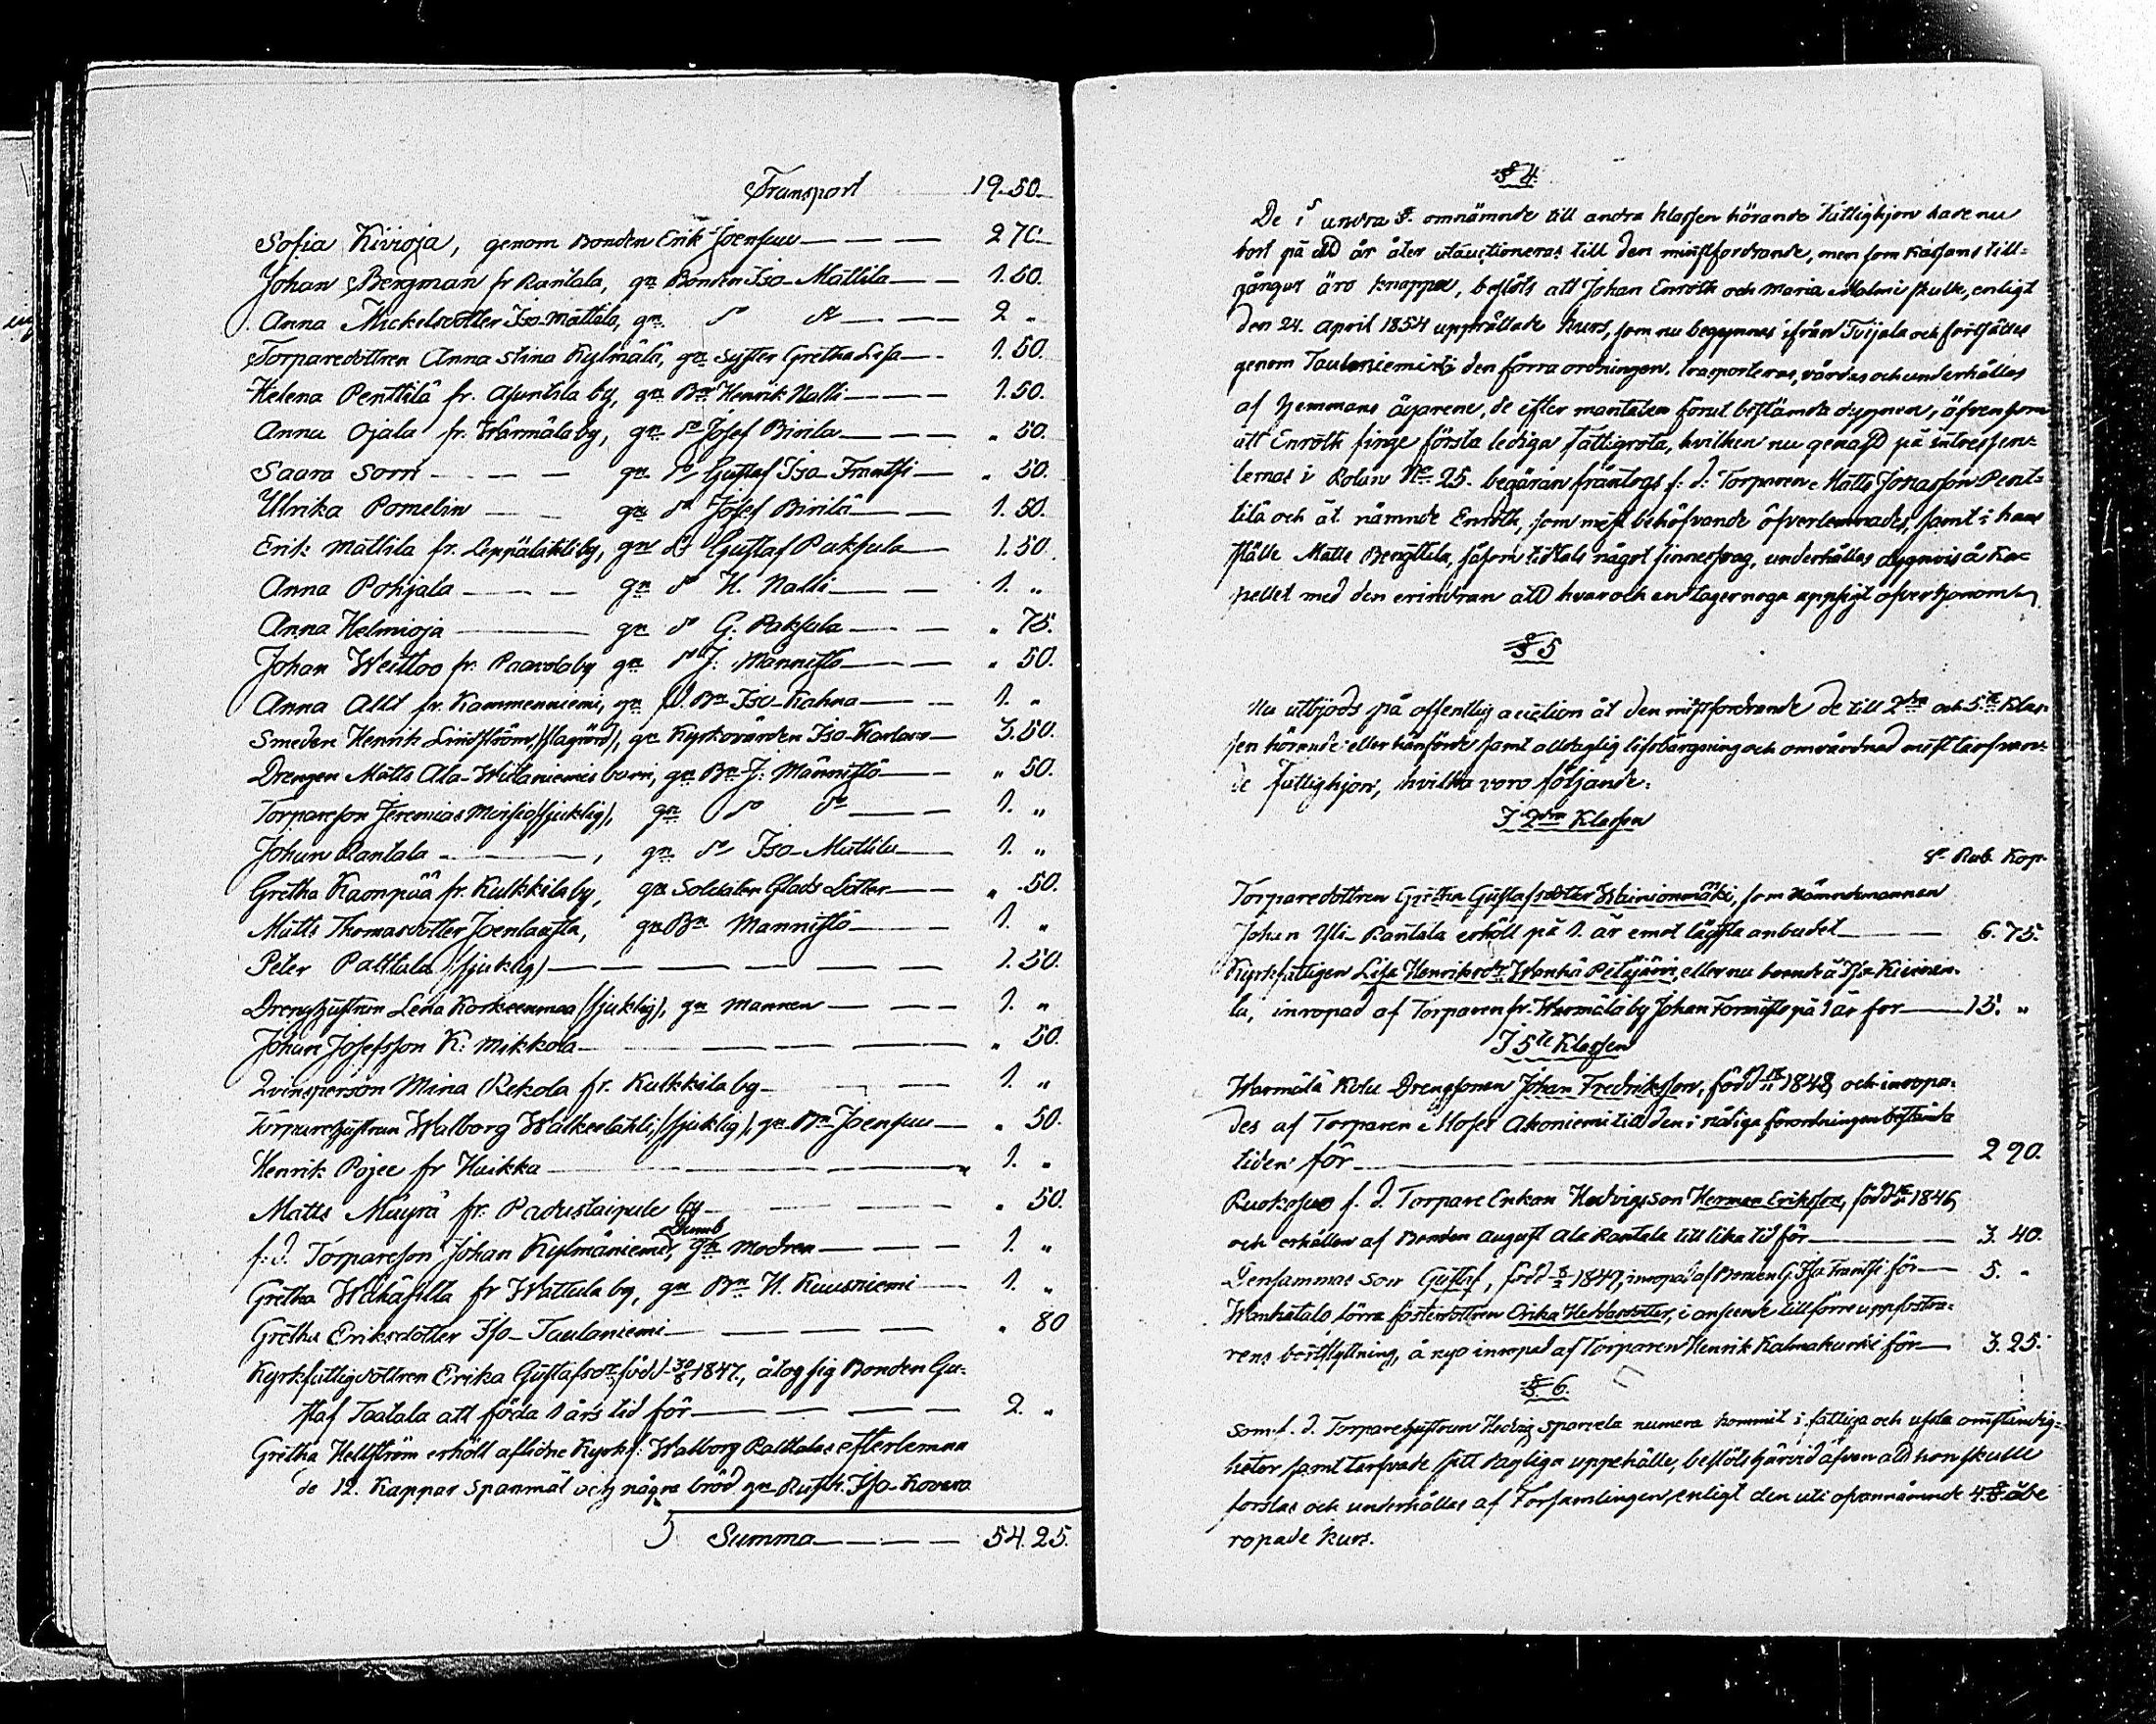 Transport 19. 50.
Sofia Kivioja, genom Bonden Erik Joensuu 2 70.
Johan Bergman fr Rantala, gn Bonden Iso-Mattila 1. 50.
Anna Mickelsdotter Iso-Mattila, gn do do 2 "
Torparedottren Anna Stina Kylmälä, gn Syster Gretha Lisa 1. 50.
Helena Penttilä fr. by, gn Bn Henrik Nalli 1. 50.
Anna Ojala fr. Wärmälä by, gn do Josef Birila " 50.
Saara Sorri gn do Gustaf Iso-Frantsi " 50.
Ulrika Pomelin gn do Josef Birilä 1. 50.
Erik Mattila fr. Leppälahti by, gn do Gustaf Paksula 1. 50
Anna Pohjala gn do H. Nalli 1. "
Anna Helmioja gn do G. Paksula " 75.
Johan Weittoo fr. Paavola by gn do J: Mannistö " 50.
Anna Allt fr. Kammenniemi, gn Bn Iso-Kahra 1. "
Smeden Henrik Lindström, (slagrörd), gn Kyrkovärden Iso-Kartano 3. 50.
Drengen Matts Ala-Witaniemis barn, gn Bn J: Männistö " 50.
Torpareson Jeremias (sjuklig), gn do do 1. "
Johan Rantala, gn do Iso-Mattila 1. "
Gretha Kaonpää fr. Kulkkila by, gn Soldaten Glads Dotter " 50.
Matts Thomasdotter Joenlaasta, gn Bn Mannistö 1. "
Peter Palttala (sjuklig) 1. 50.
Drenghustrun Lena Korkeenmaa (sjuklig), gn mannen 1. "
Johan Josefsson K: Mikkola " 50.
Qvinsperson Mina Rekola fr. Kulkkila by 1. "
Torparehustrun Walborg Walkeelahti, (sjuklig), gn Bn Joensuu " 50.
Henrik Pojee fr Haikka 1. "
Matts Mäyrä fr. Padustaipale by " 50.
f. d. Torpareson Johan Kylmäniemi, Dumb gn modren 1. "
Gretha Wähäsilta fr Wattula by, gn Bn H. Kuusniemi 1. "
Gretha Eriksdotter Iso-Taulaniemi " 80
Kyrkfattigdottren Erika Gustafsdr född 30/8 1847., åtog sig Bonden Gu-
staf Taatala att föda 1 års tid för 2. "
Gretha Hellström erhöll aflidne Kyrkf: Walborg Palttalas efterlemna
de 12. Kappar Spanmål och några bröd gn Iso-Kovero
Summa 54. 25.
§ 4.
De i andra §. omnämnde till andra klassen hörande Fattighjon hade nu
bort på ett år åter utauctioneras till den minstfordrande, men som Kassans till-
gångar äro knappa, beslöts att Johan Enroth och Maria Malmi skulle, enligt
den 24. April 1854 upprättade kurs, som nu begynnes ifrån Tvijala och fortsättes
genom Tauloniemi i den förra ordningen. transporteras, vårdas och underhållas
af Hemmans ägarene, de efter mantalen förut bestämda dygnen, äfvensom
att Enroth finge första lediga Fattigrota, hvilken nu genast på intressen-
ternas i Rotan No 25. begäran fråntogs f. d. Torparen Matts Jonasson Pent-
tilä och åt nämnde Enroth, som mest behöfvande öfverlemnades, samt i hans
ställe Matts Bengttila, såsom tidtals något sinnessvag, underhålles dygnvis å Ka-
pellet med den erindran att hvar och en tager noga uppsigt öfver honom
§ 5
Nu utbjöds på offentlig auction åt den minstfordrande de till 2dra och 5te Klas-
sen hörande eller hänförde samt alldaglig lifsbärgning och omvårdnad mest tarfvan-
de Fattighjon, hvilka voro följande:
I 2dra Klassen
Sr Rub. Kop.
Torparedottren Gretha Gustafsdotter Wainionmäki, som Nämndemannen
Johan Yli-Rantala erhöll på 1. år emot lägsta anbudet 6. 75.
Kyrkfattigen Lisa Henriksdr Wanha Petäjärvi, eller nu boende å Iso Kiviran-
ta, inropad af Torparen fr. Warmälä by Johan Tormistö på 1 år för 15. "
I 5te Klassen
Warmälä Rotes Drengsonen Johan Fredriksson, född 1848, och inropa-
des af Torparen Mofes Ahoniemi till den i nådiga förordningen bestämda
tiden för 2 90.
Ruokosuo f. d. Torpare Enkan Hedvigs son Herman Eriksson, född 1846,
och erhållen af Bonden August Ala Rantala till lika tid för 3. 40.
Densammas son Gustaf, född 1847, inropad af Bonden G. Iso Frantsi för 5. "
Wanhatalo förra fosterdottren Erika Hedvasdotter, i anseende till förre uppfostra-
rens bortflyttning, å nyo inropad af Torparen Henrik Kalmakurki för 3. 25.
§ 6.
Som f. d. Torparehustrun Hedvig Sparvela numera kommit i fattiga och usla omständig-
heter samt tarfvade sitt dagliga uppehälle, beslöts härvid äfven att hon skulle
forslas och underhållas af Församlingen, enligt den uti ofvannämnde 4. § åbe
ropade kurs.